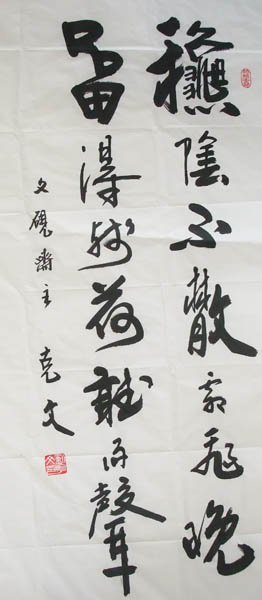 穐陰不散霜飛晚
畱得殘荷聽雨聲
文硯齋主 克文